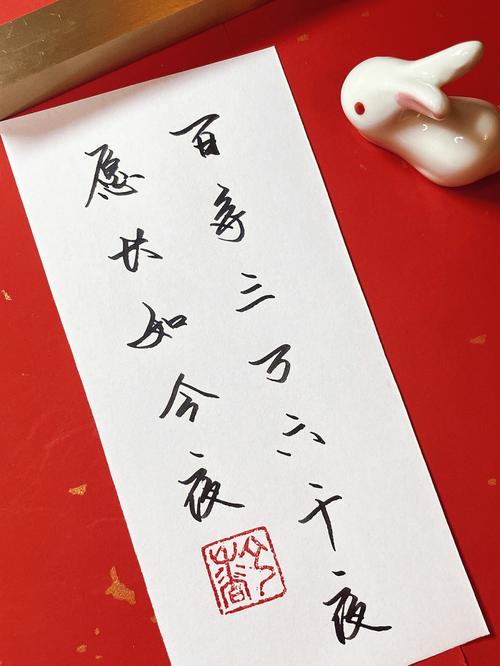 百年三万六千夜
愿长如今夜